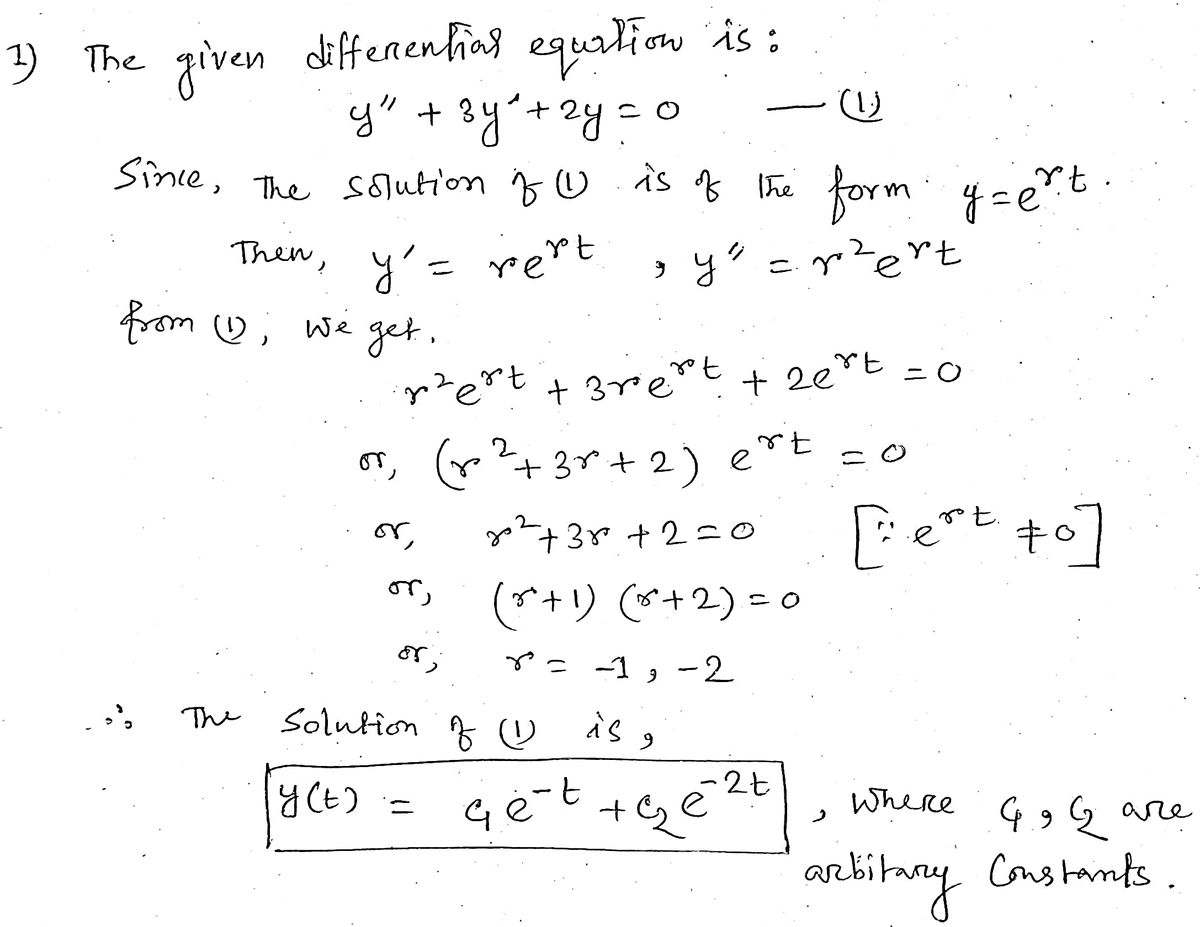 1) The given differential equation is :
y'' + 3y' + 2y = 0 — (1)
Since, The solution of (1) is of the form y = e^{rt}.
Then, y' = re^{rt} , y'' = r^2e^{rt}
from (1), we get,
r^2e^{rt} + 3re^{rt} + 2e^{rt} = 0
or, (r^2 + 3r + 2) e^{rt} = 0
or, r^2 + 3r + 2 = 0 [∵ e^{rt} ≠ 0]
or, (r+1) (r+2) = 0
or, r = -1, -2
∴ The Solution of (1) is,
y(t) = c_1e^{-t} + c_2e^{-2t} , where c_1, c_2 are
arbitary Constants.